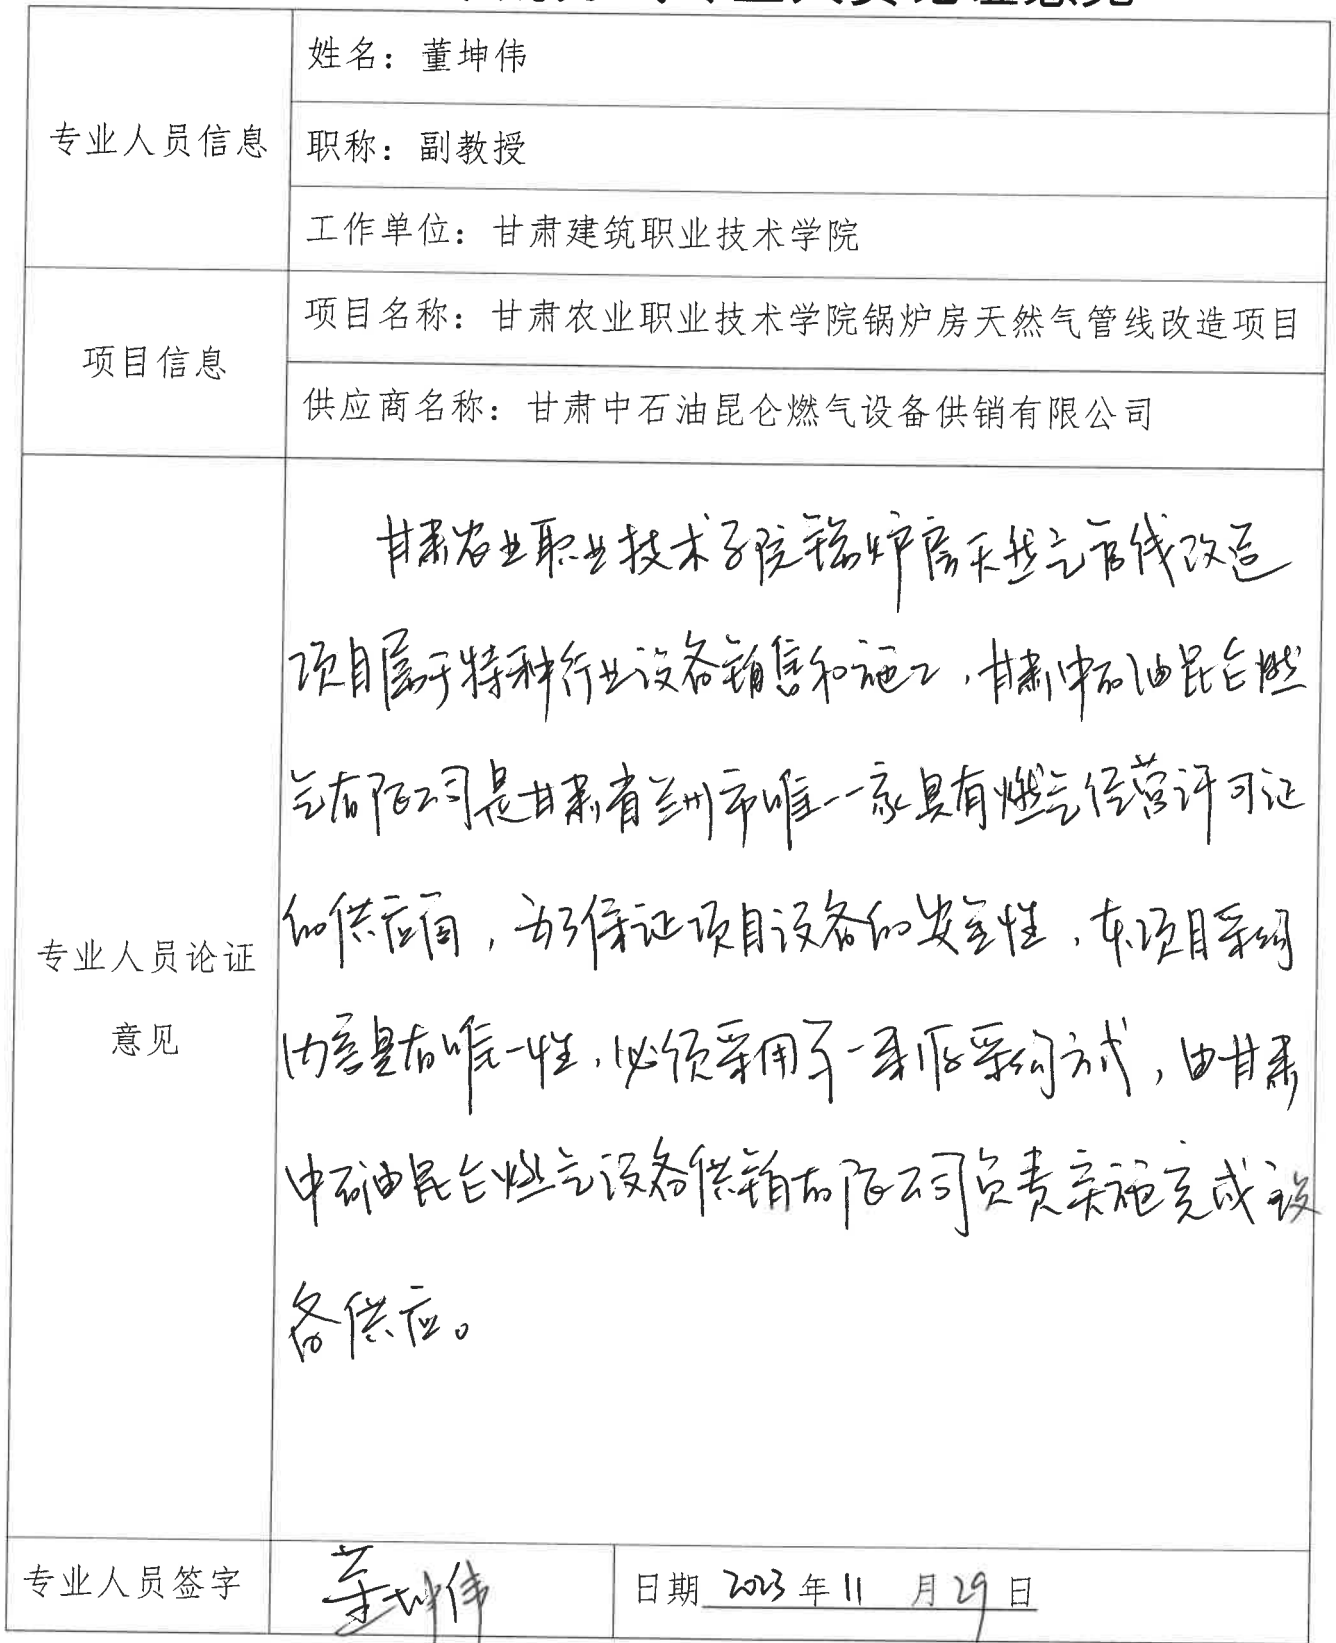 专业人员信息
姓名：董坤伟
职称：副教授
工作单位：甘肃建筑职业技术学院
项目信息
项目名称：甘肃农业职业技术学院锅炉房天然气管线改造项目
供应商名称：甘肃中石油昆仑燃气设备供销有限公司
专业人员论证
意见
甘肃农业职业技术学院锅炉房天然气管线改造
项目属于特种行业设备销售和施工，甘肃中石油昆仑燃
气有限公司是甘肃省兰州市唯一一家具有燃气经营许可证
的供应商，为了保证项目设备的安全性，本项目采购
内容具有唯一性，必须采用单一来源采购方式，由甘肃
中石油昆仑燃气设备供销有限公司负责实施完成设
备供应。
专业人员签字
董坤伟
日期 2023 年 11 月 29 日